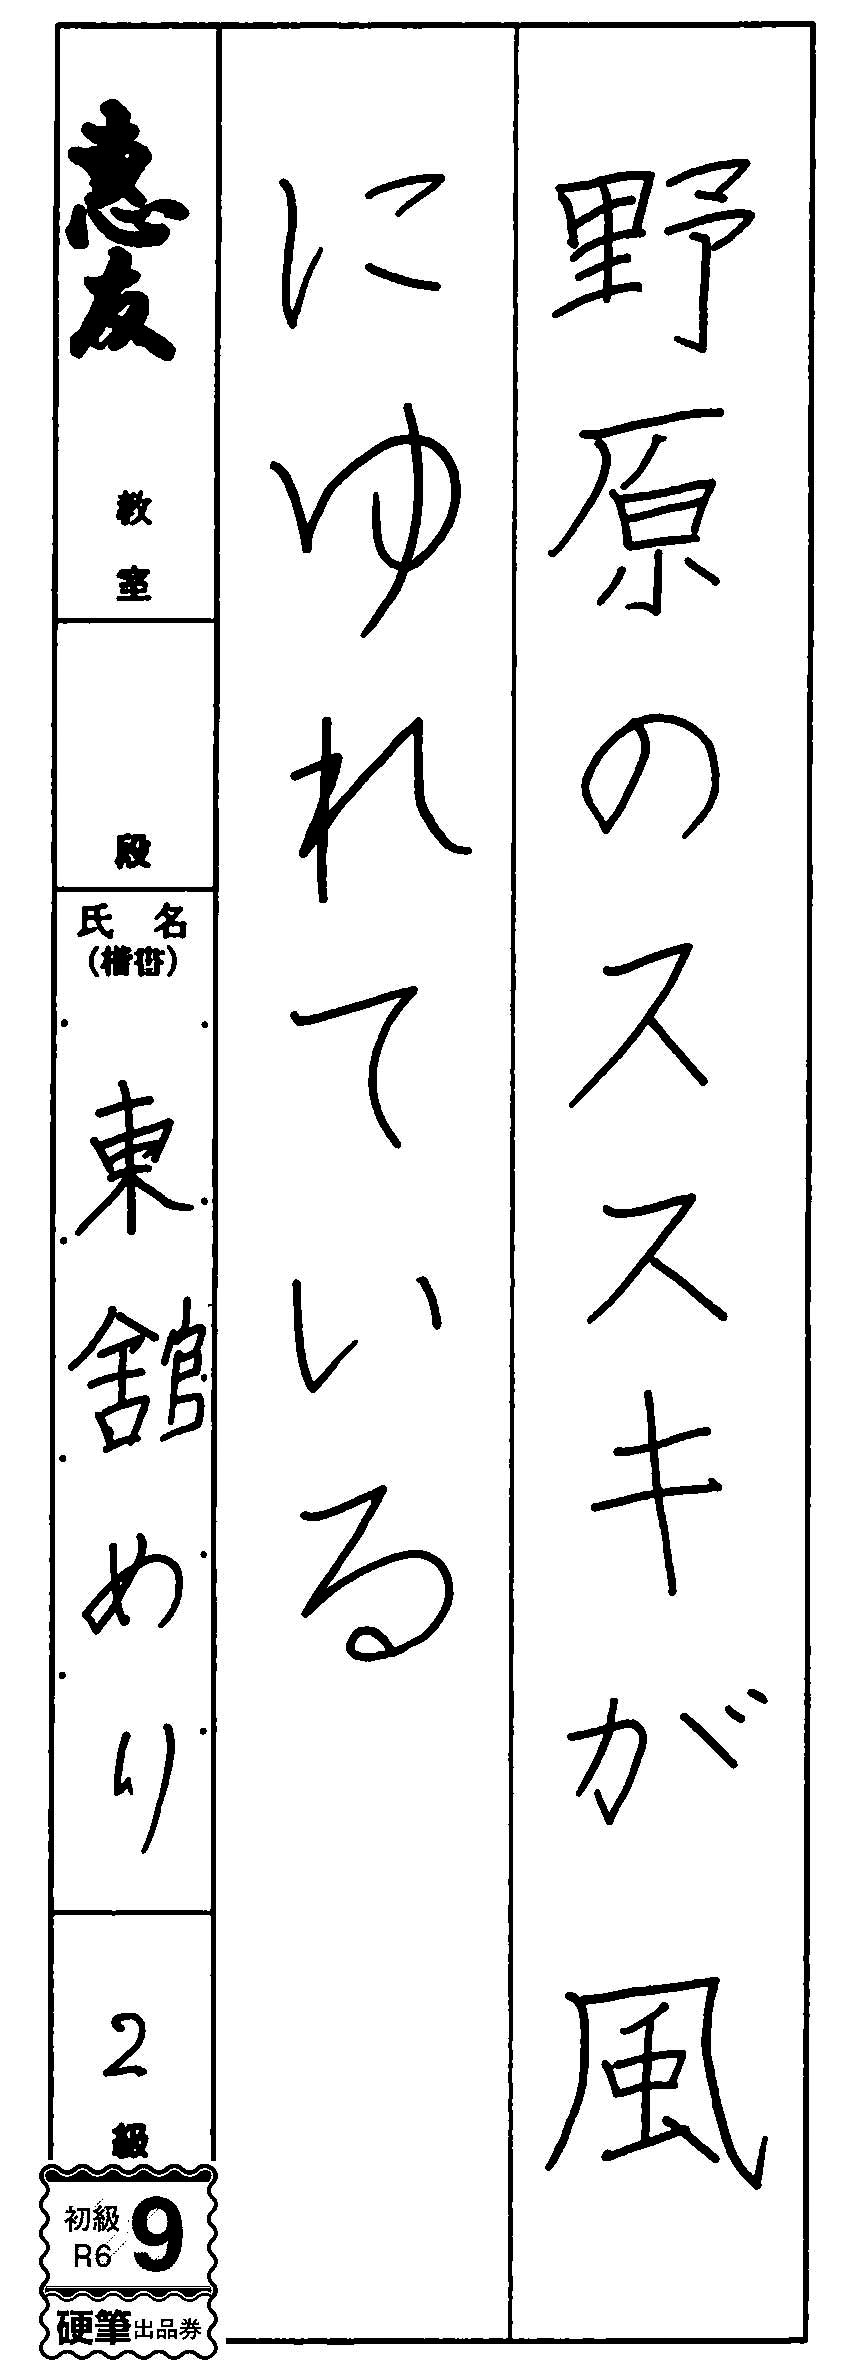 野原のススキが風
にゆれている
惠友
教室
段
氏名
(楷書)
東舘めり
2
級
初級
R6
9
硬筆出品券